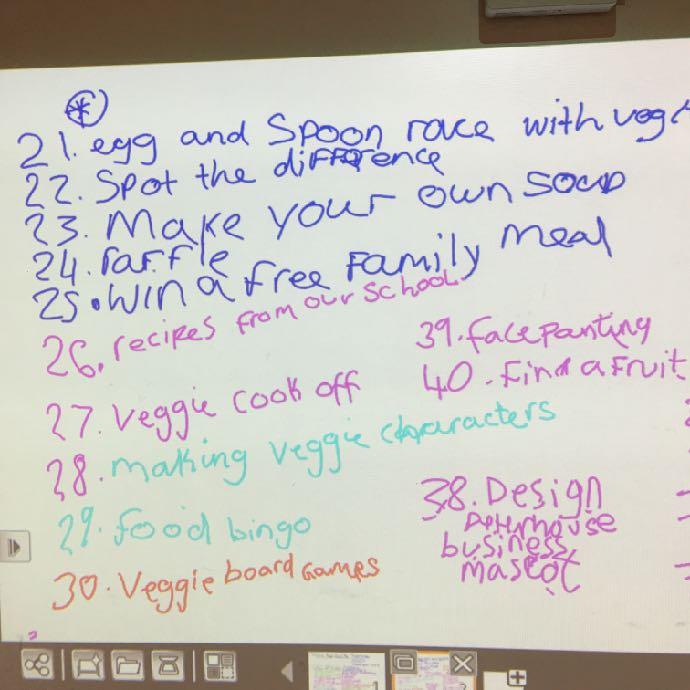 21. egg and Spoon race with veg
22. Spot the difference
23. Make your own soup
24. raffle
25. win a free family meal
26. recipes from our school
27. Veggie cook off
28. making veggie characters
29. food bingo
30. Veggie board games
39. face panting
40. find a fruit
38. Design
Peterhouse
business
mascot